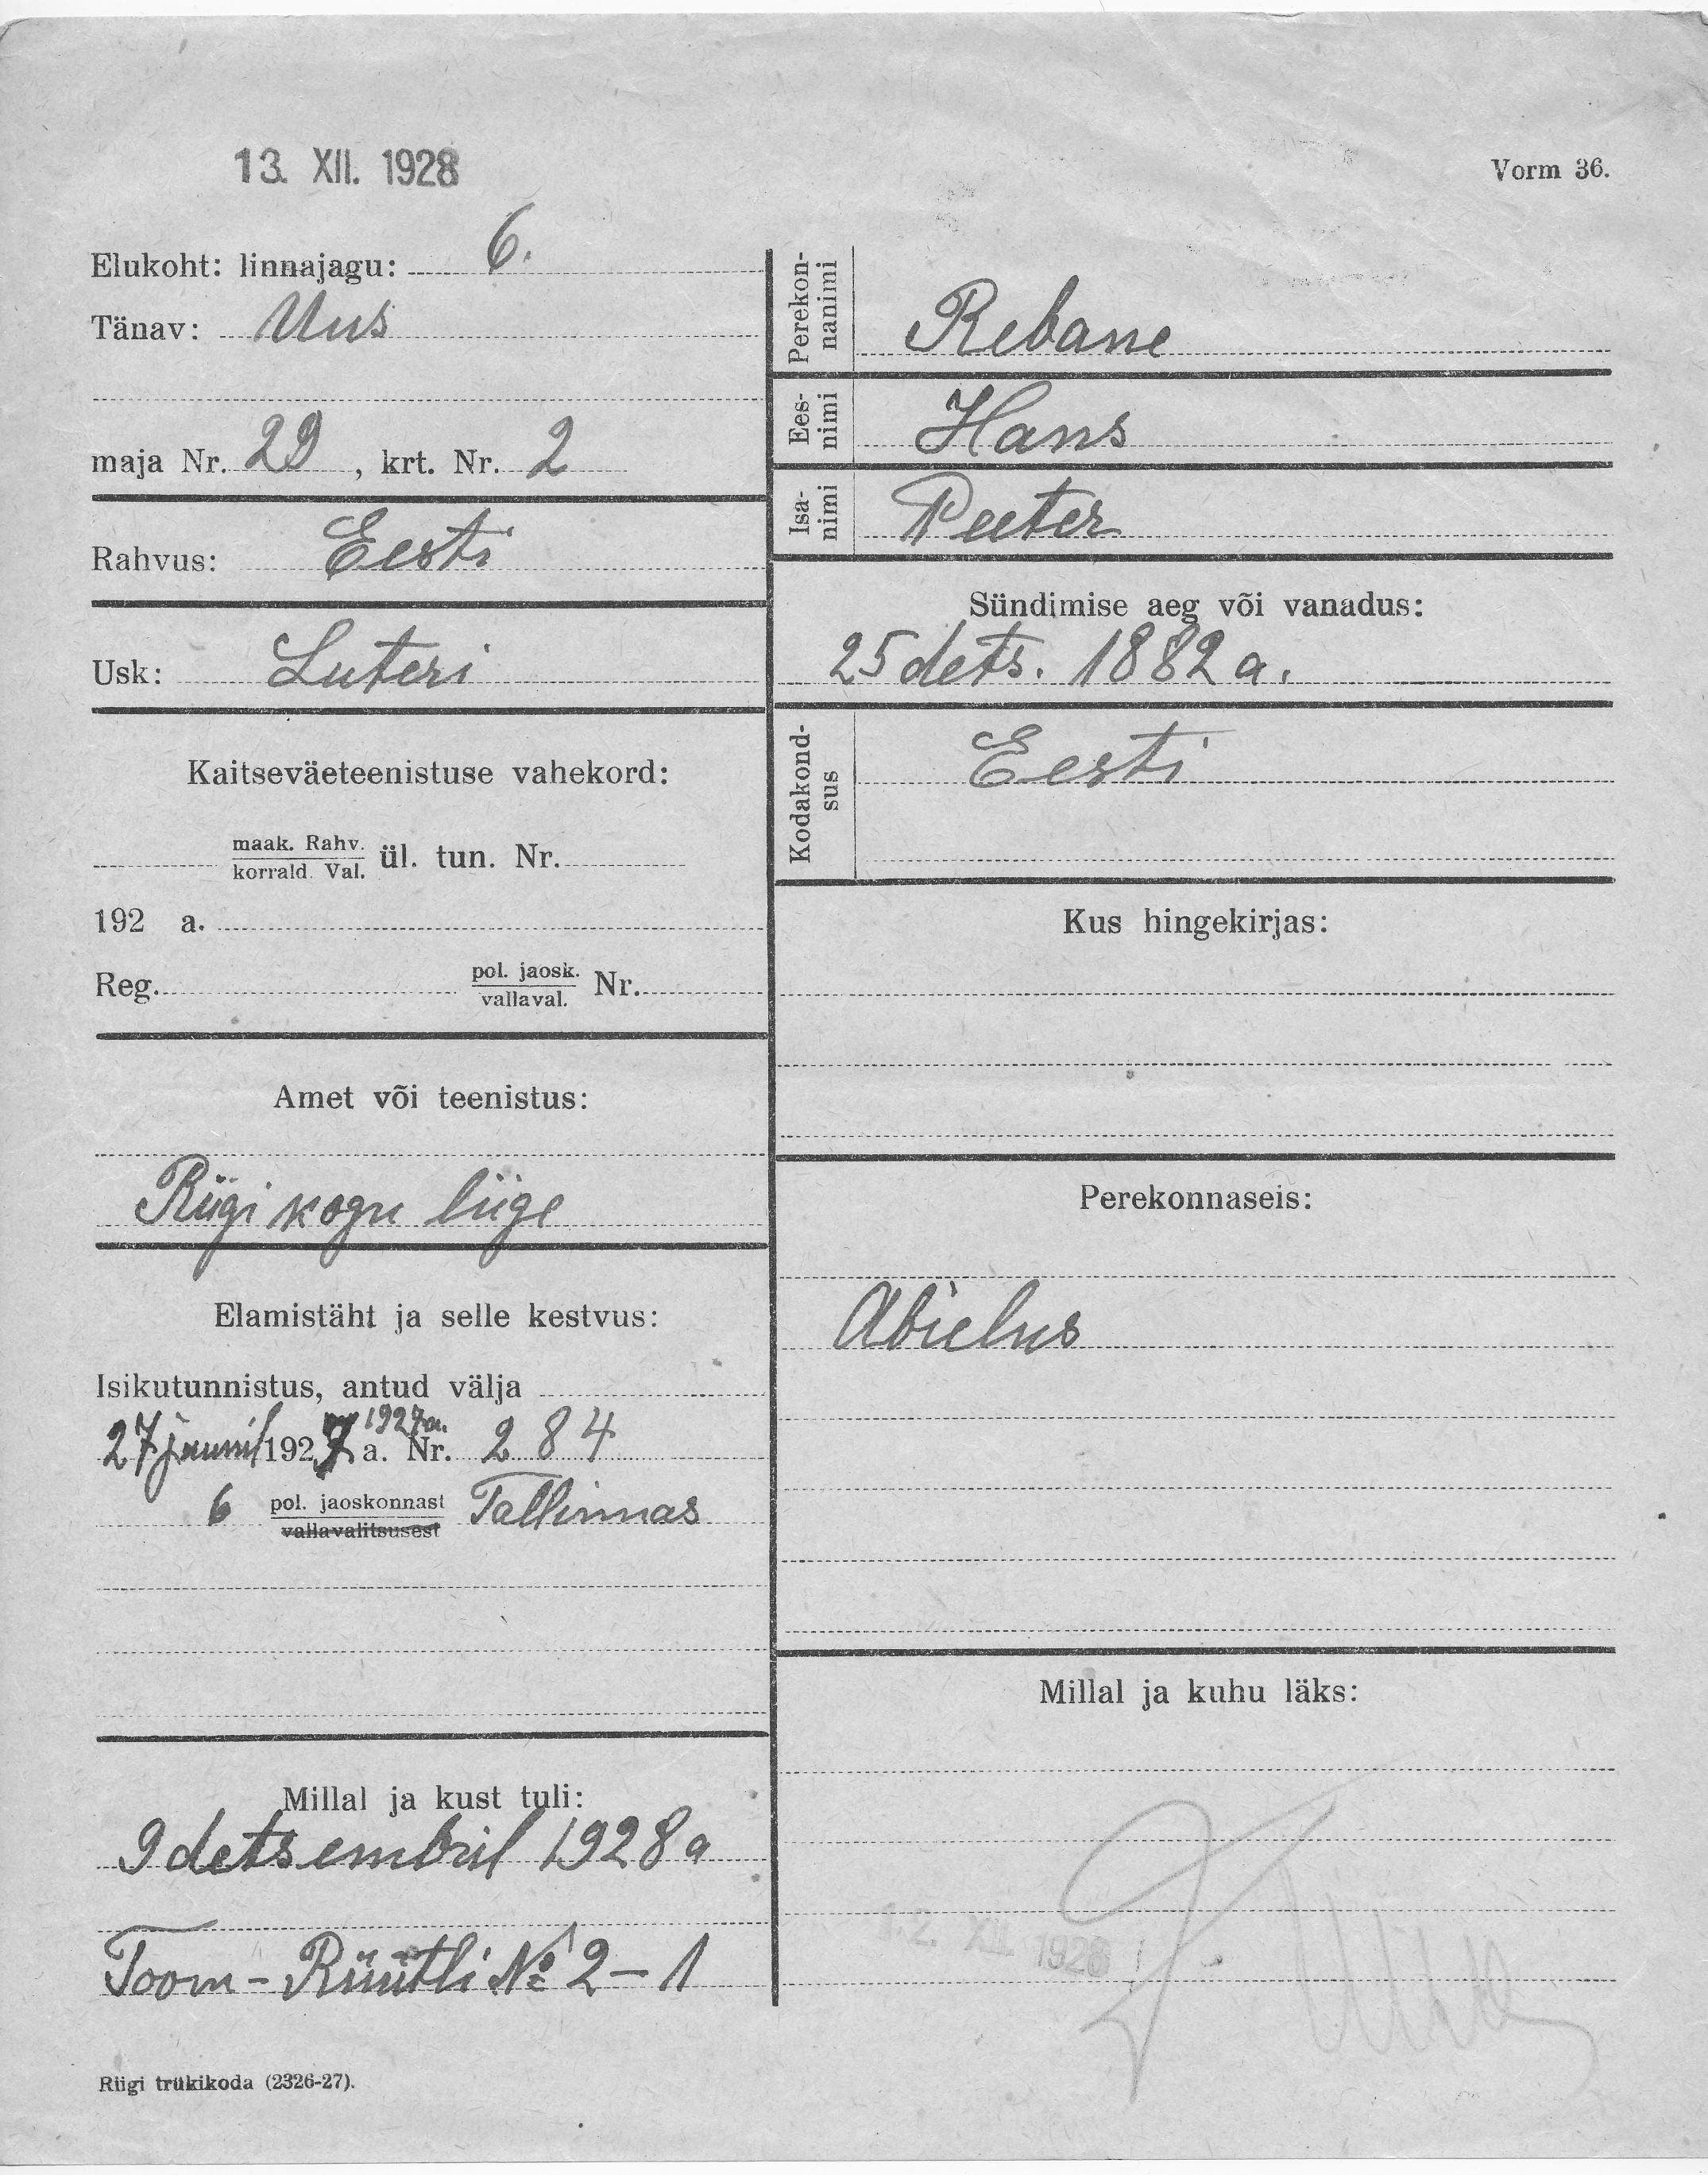 13. XII. 1928
Vorm 36.
Elukoht: linnajagu: 6.
Tänav: Uus
maja Nr. 29, krt. Nr. 2
Rahvus: Eesti
Usk: Luteri
Kaitseväeteenistuse vahekord:
maak. Rahv.
korrald. Val.
ül. tun. Nr.
192 a.
Reg. pol. jaosk.
vallaval.
Nr.
Amet või teenistus:
Riigi kogu liige
Elamistäht ja selle kestvus:
Isikutunnistus, antud välja
1927a.
27 juunil 1927 a. Nr. 284
6 pol. jaoskonnast Tallinnas
vallavalitsusest
Millal ja kust tuli:
9 detsembril 1928 a
Toom-Rüütli № 2-1
Riigi trükikoda (2326-27).
Perekon-
nanimi
Rebane
Ees-
nimi
Hans
Isa-
nimi
Peeter
Sündimise aeg või vanadus:
25 dets. 1882 a.
Kodakond-
sus
Eesti
Kus hingekirjas:
Perekonnaseis:
Abielus
Millal ja kuhu läks:
12. XII. 1928